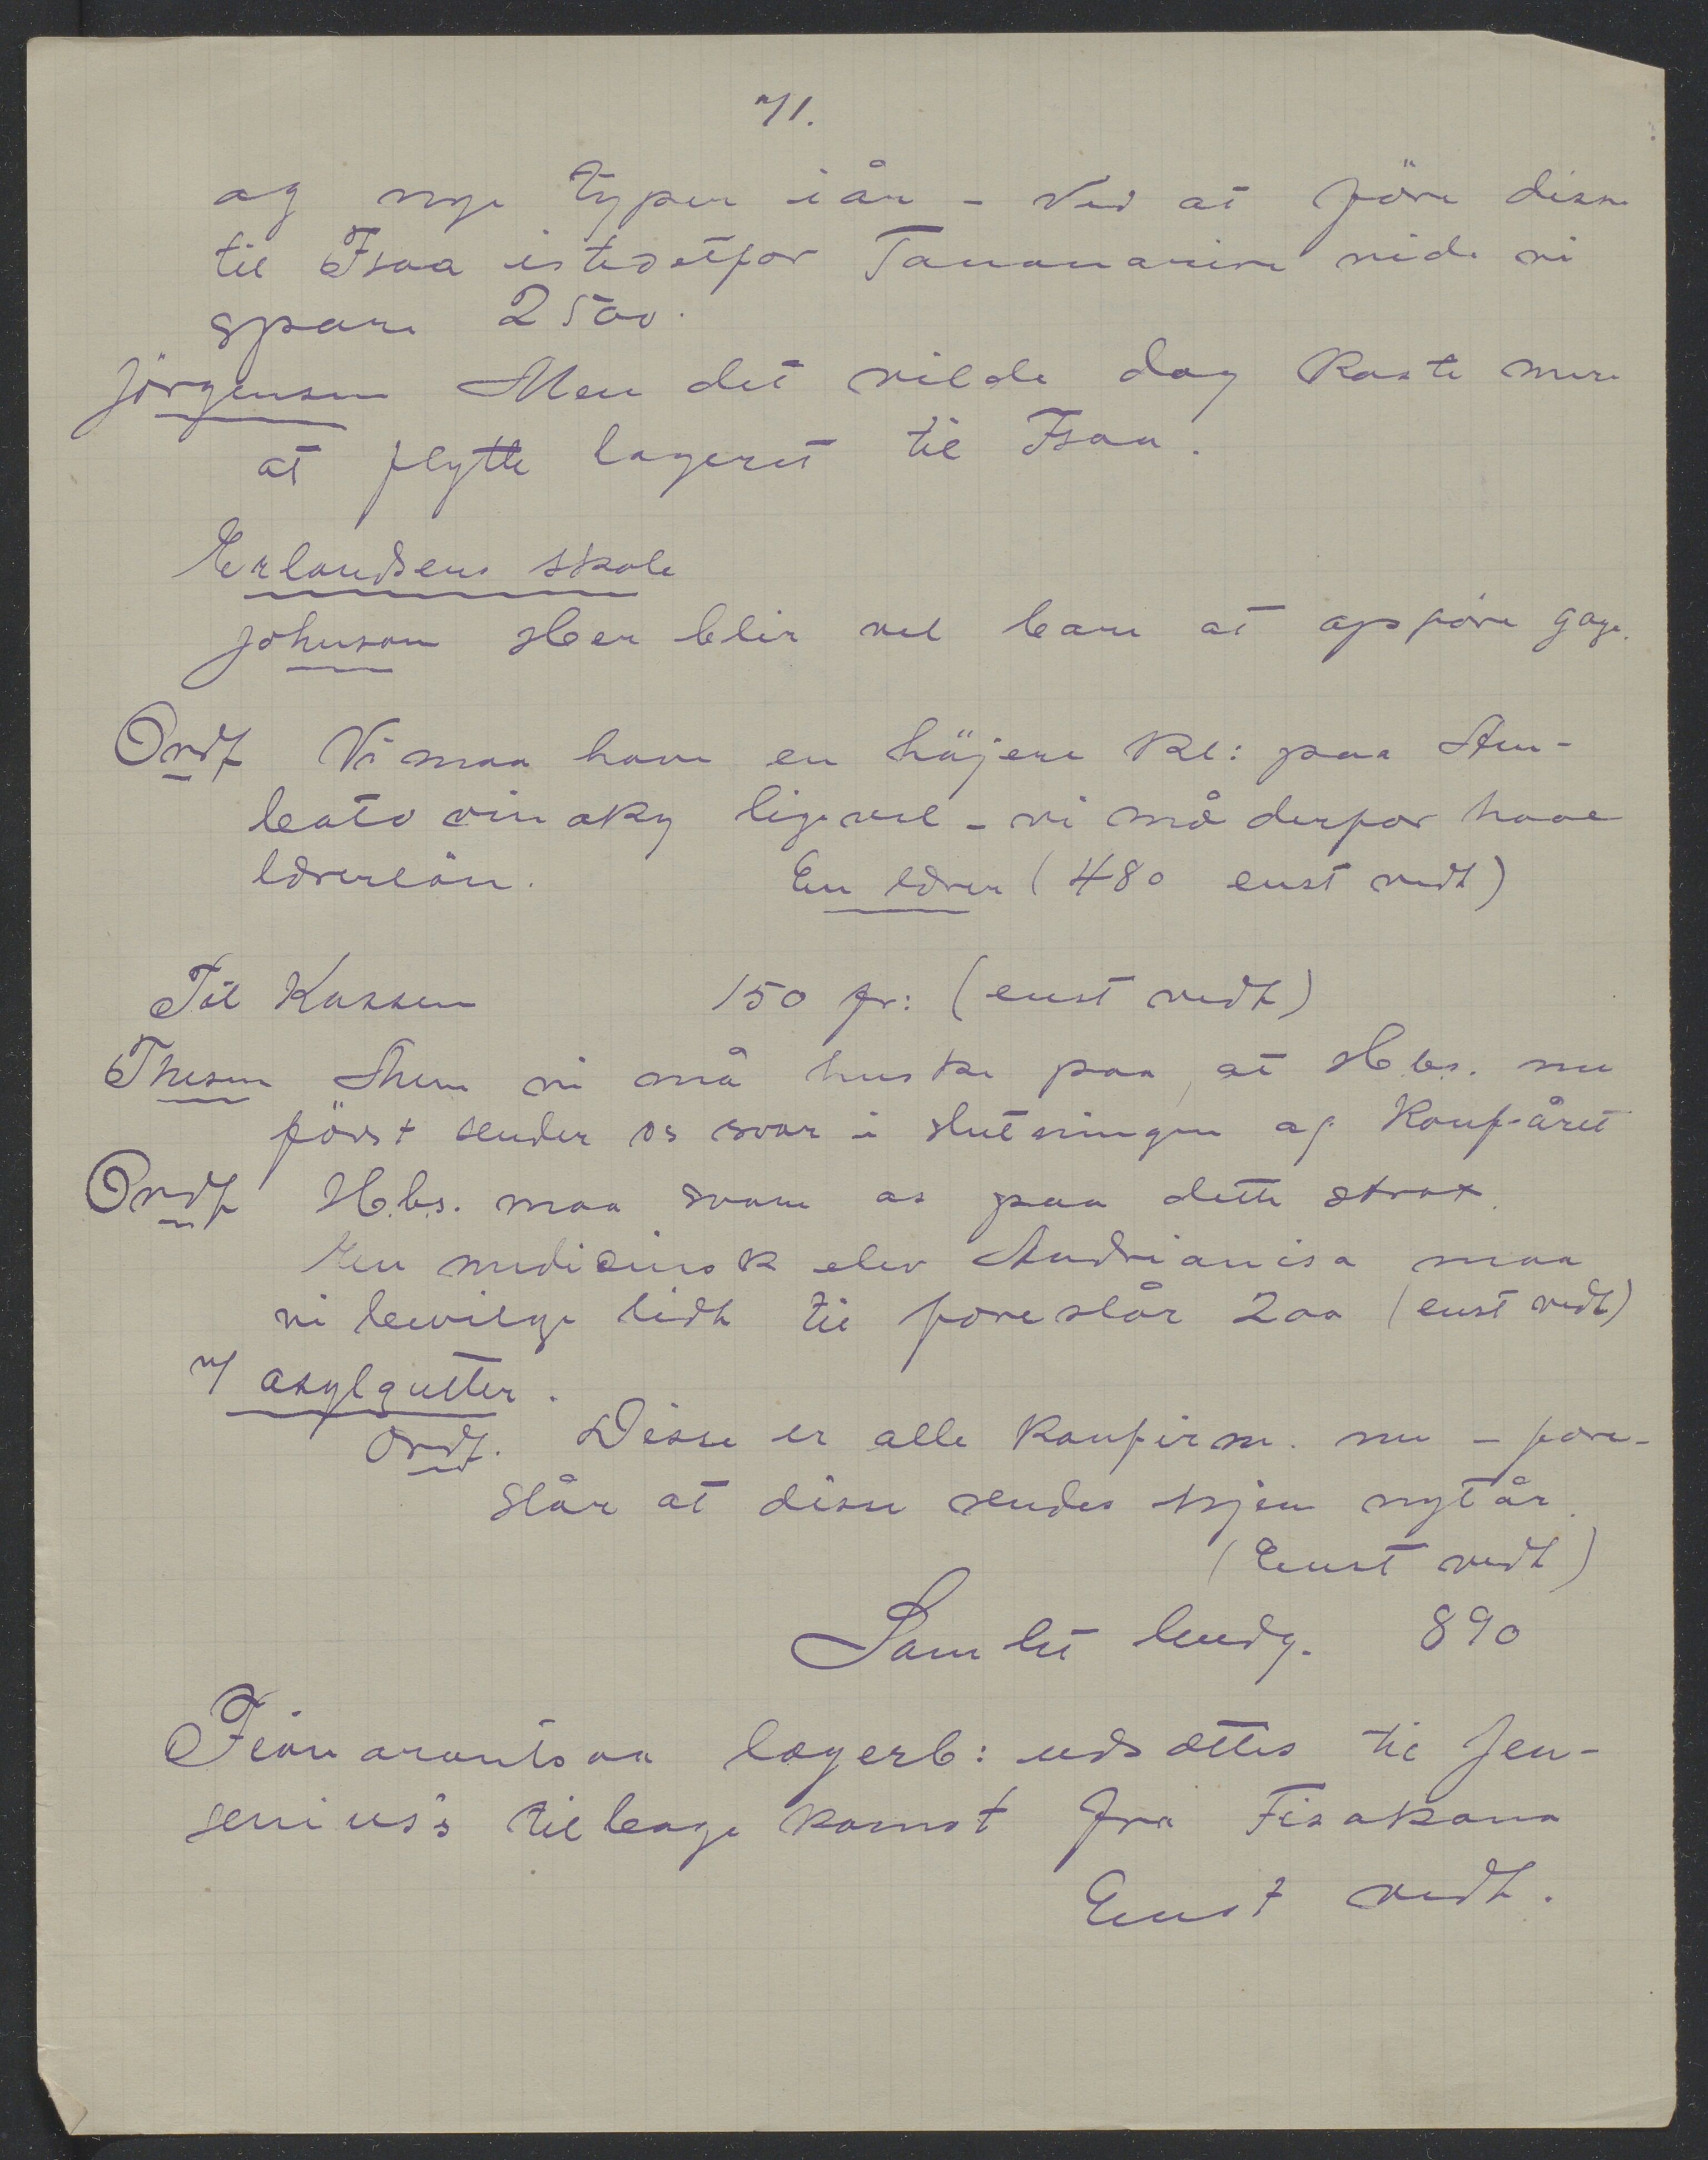 71.
og nye typer iår - Ved at före disse
til Fsoa istedetfor Tananarive vilde vi
spare 2500.
Jörgensen Men det vilde dog koste mere
at flytte lageret til Fsoa.
Erlandsens skole
Johnson Her blir vel bare at opföre gage.
Ordf Vi maa have en höjere kl: paa Am-
batovinaky ligevel - vi må derfor have
lærerlön. En lærer (480 enst vedt)
Til Kassen 150 fr: (enst vedt)
Thesen Men vi må huske paa, at Hbs. nu
först sender os svar i slutningen af Konf-året
Ordf Hbs. maa svare os paa dette strax.
En medicinsk elev Andrianisa maa
vi bevilge lidt til foreslår 200 (enst vedt)
7 asylgutter.
Ordf. Disse er alle konfirm. nu - fore-
slår at disse sendes hjem nytår.
(Enst vedt)
Samlet budg. 890
Fianarantsoa lægerb: udsættes til Jen-
senius's tilbage komst fra Fisakana
Enst vedt.